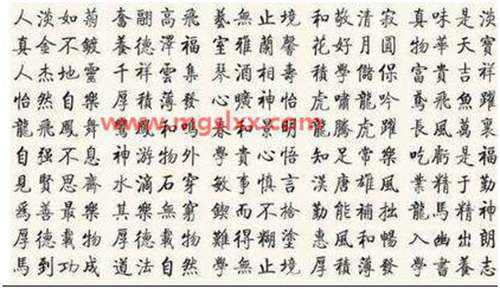 人淡如菊 奮翮高飛 藝無止境 和敬清寂 真味是淡
真金不鍍 養德澤福 室雅蘭馨 花好月圓 物華天寶
人杰地靈 千祥雲集 琴 相壽 學 保 富貴吉祥
怡然自樂 厚積薄發 心曠神怡 虎嘯龍吟 鳶飛魚躍
龍飛鳳舞 鸞鳳和鳴 春和景明 龍騰虎躍 長風萬裏
www.mgslxx.com
自强不息 神游物外 學貴心悟 知足常樂 吃虧是福
見賢思齋 水滴石穿 敏事慎言 漢唐雄風 業精于勤
爲善最樂 其樂無窮 鍥而不捨 勤能補拙 龍馬精神
厚德載物 厚德載物 難得糊塗 惠風和暢 入幽出朗
馬到功成 道法自然 學無止境 厚積薄發 學書養志